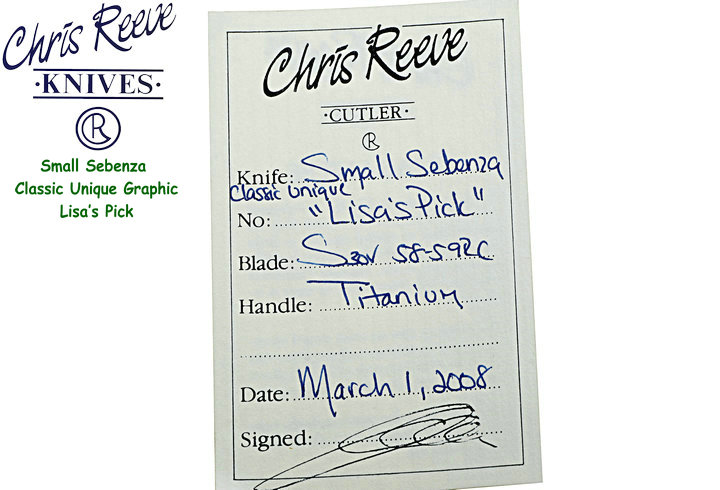 Chris Reeve
·KNIVES·
R
Small Sebenza
Classic Unique Graphic
Lisa's Pick
Chris Reeve
·CUTLER·
R
Knife: Small Sebenza
Classic Unique
No: "Lisa's Pick"
Blade: S30V 58-59RC
Handle: Titanium
Date: March 1, 2008
Signed: